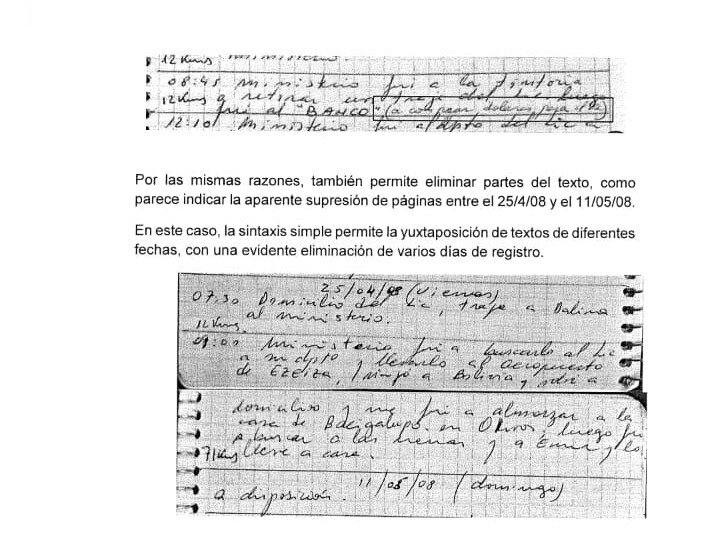 12 Kms Ministerio.
08:45 Ministerio fui a la tintoria
12 Kms a retirar un traje del Lic luego
fui al "BANCO" (a comprar dolares para el Lic)
12:10 Ministerio fui al dpto del Lic a
Por las mismas razones, también permite eliminar partes del texto, como
parece indicar la aparente supresión de páginas entre el 25/4/08 y el 11/05/08.
En este caso, la sintaxis simple permite la yuxtaposición de textos de diferentes
fechas, con una evidente eliminación de varios días de registro.
25/04/08 (Viernes)
07:30 Domicilio del Lic, traje a Dalina
al ministerio.
12 Kms.
09:00 Ministerio fui a buscarlo al Lic
a su dpto y llevarlo al Aeropuerto
de EZEIZA, viajó a Bolivia y volví a
domicilio y me fui a almorzar a la
casa de Bacigalupo en Olivos, luego fui
a buscar a las nenas y a Emir y lo
71 Kms lleve a casa.
11/05/08 (domingo)
a disposición.